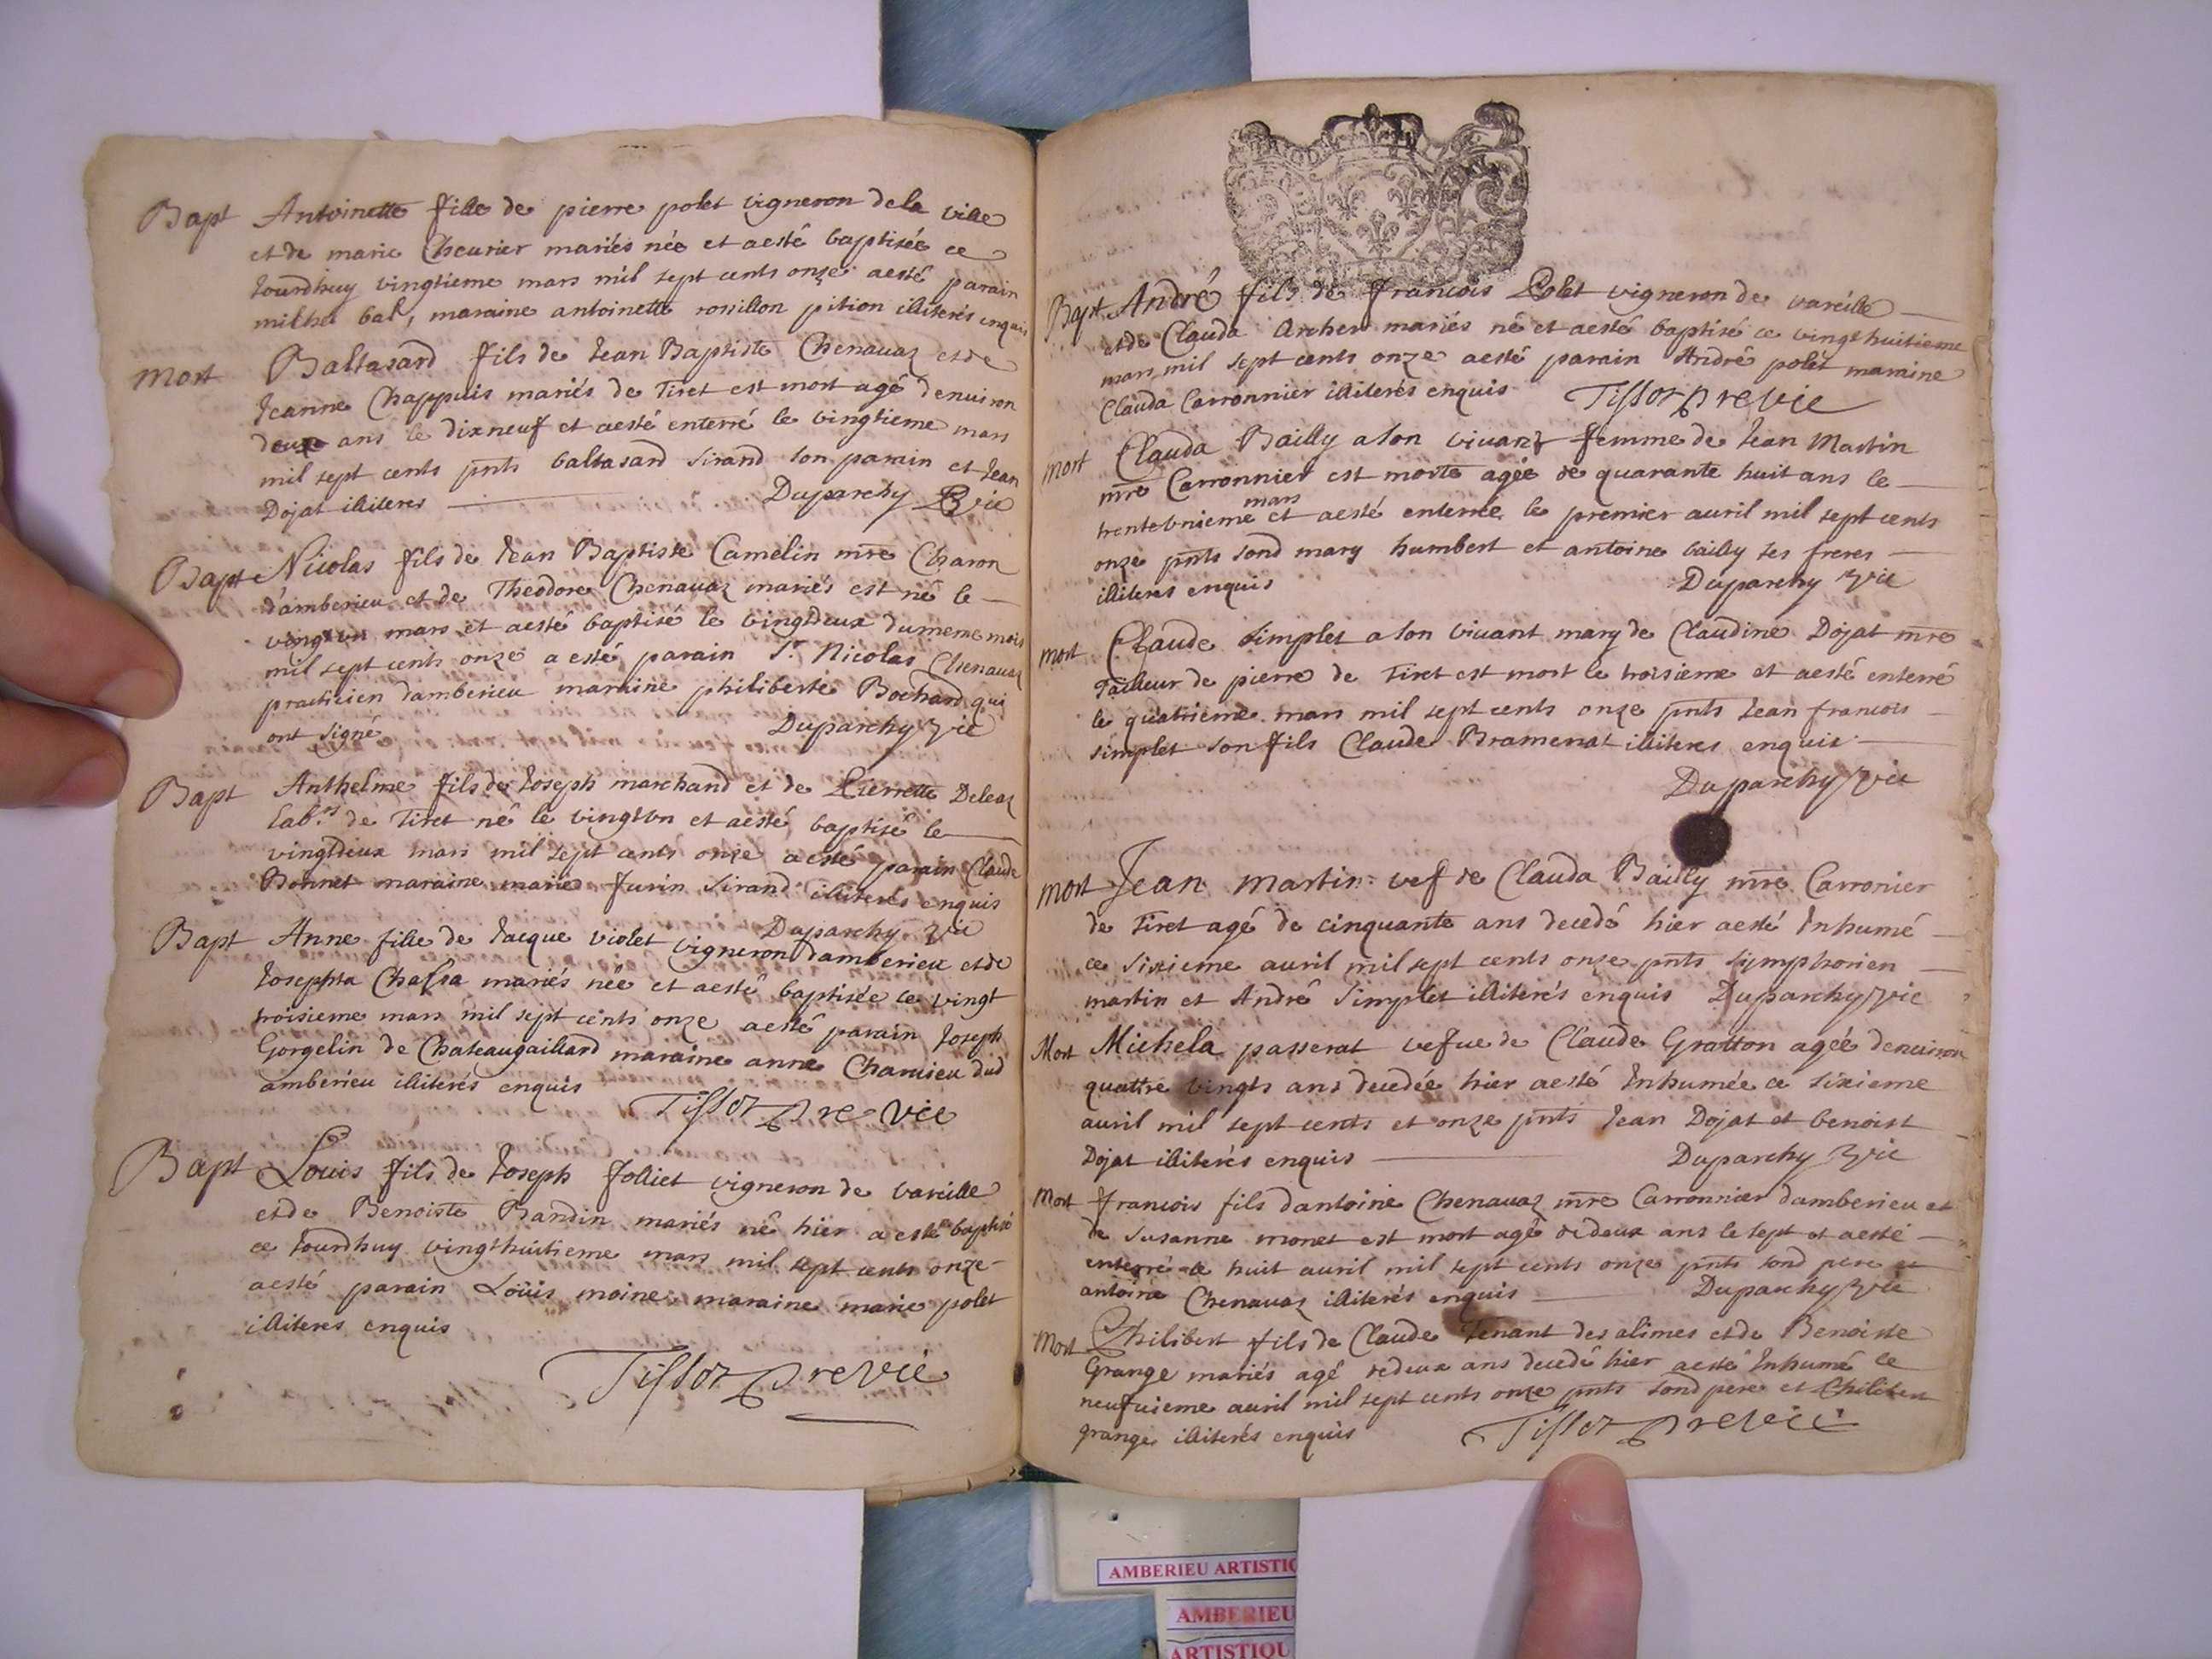 Bapt Antoinette fille de pierre polet vigneron dela ville
et de marie Cheurier mariés née et aesté baptisée ce
Jourdhuy vingtieme mars mil sept cents onze aesté parain
michel bal, maraine antoinette rossillon pition illiterés enquis
mort Baltasard fils de Jean Baptiste Chenauaz et de
Jeanne Chappuis mariés de Tiret est mort agé denuiron
deux ans le dixneuf et aesté enterré le vingtieme mars
mil sept cents pnts baltasard Sirand son parain et Jean
Dojat illiteres Duparchy Vic
Bapt Nicolas fils de Jean Baptiste Camelin mre Charon
d'amberieu et de Theodore Chenauaz mariés est né le
vingtvn mars et aesté baptisé le vingtdeux dumeme mois
mil sept cents onze a esté parain Sr Nicolas Chenauaz
practicien damberieu maraine philiberte Bochard qui
ont signé Duparchy vic
Bapt Anthelme fils de Joseph marchand et de Pierrette Deleaz
labrs de Tiret né le vingtvn et aesté baptisé le
vingtdeux mars mil sept cents onze a esté parain Claude
Bonnet maraine marie furin Sirand illiterés enquis
Duparchy vic
Bapt Anne fille de Jacque violet vigneron damberieu et de
Josephta Chassa mariés née et aesté baptisée ce vingt
troisieme mars mil sept cents onze aesté parain Joseph
Gorgelin de Chateaugaillard maraine anne Chamieu dud
amberieu illiterés enquis Tissot pre vic
Bapt Louis fils de Joseph folliet vigneron de vareille
et de Benoiste Bandin mariés né hier a esté baptisé
ce Jourdhuy vingthuitieme mars mil sept cents onze
aesté parain Loüis moine maraine marie polet
illiteres enquis
Tissot pre vic
Bapt André fils de francois Polet vigneron de vareille
et de Clauda Archer mariés né et aesté baptisé ce vingthuitieme
mars mil sept cents onze aesté parain André polet maraine
Clauda Carronnier illiterés enquis Tissot pre vic
mort Clauda Bailly a son viuant femme de Jean Martin
mre Carronnier est morte agée de quarante huit ans le
trentevnieme mars et aesté enterrée le premier auril mil sept cents
onze pnts sond mary humbert et antoine bailly ses freres
illiteres enquis Duparchy vic
mort Claude simplet a son viuant mary de Claudine Dojat mre
Tailleur de pierre de Tiret est mort le troisieme et aesté enterré
le quatrieme mars mil sept cents onze pnts Jean francois
simplet son fils Claude Bramerat illiteres enquis
Duparchy vic
mort Jean martin vef de Clauda Bailly mre Carronier
de Tiret agé de cinquante ans decedé hier aesté Inhumé
ce sixieme auril mil sept cents onze pnts symphorien
martin et André Simplet illiterés enquis Duparchy vic
Mort Michela passerat vefue de Claude Gratton agée denuiron
quattre vingts ans decedée hier aesté Inhumée ce sixieme
auril mil sept cents et onze pnts Jean Dojat et benoist
Dojat illiterés enquis Duparchy vic
Mort francois fils dantoine Chenauaz mre Carronnier damberieu et
de Susanne monet est mort agé de deux ans le sept et aesté
enterré le huit auril mil sept cents onze pnts sond pere et
antoine Chenauaz illiterés enquis Duparchy vic
Mort Philibert fils de Claude Tenant des alimes et de Benoiste
Grange mariés agé de deux ans decedé hier aesté Inhumé le
neufuieme auril mil sept cents onze pnts sond pere et Philibert
grange illiterés enquis Tissot pre vic
AMBERIEU ARTISTIQ
AMBERIEU
ARTISTIQU